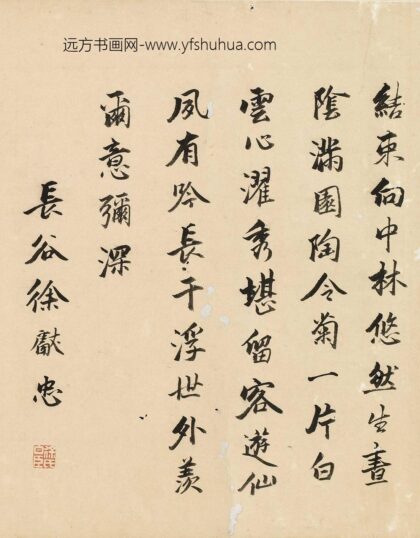 远方书画网-www.yfshuhua.com
結束向中林悠然生晝
陰滿園陶令菊一片白
雲心濯秀堪留客遊仙
夙有吟長于浮世外羨
爾意彌深
長谷徐獻忠